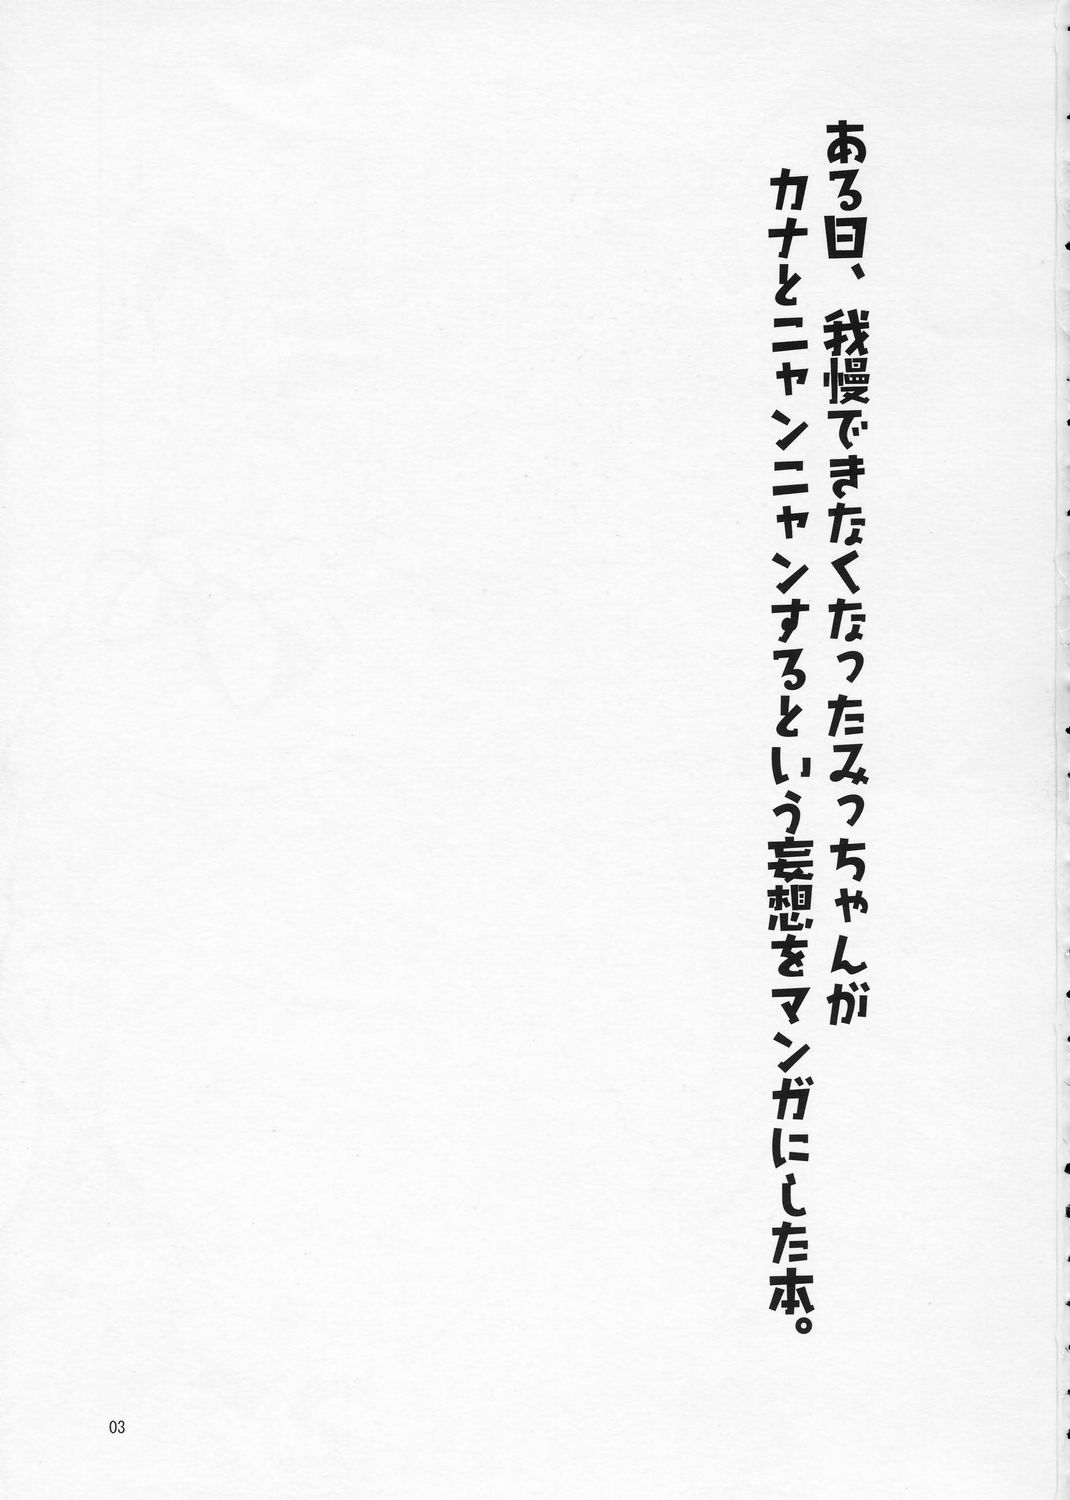 ある日、我慢できなくなったみっちゃんが
カナとニャンニャンするという妄想をマンガにした本。
03